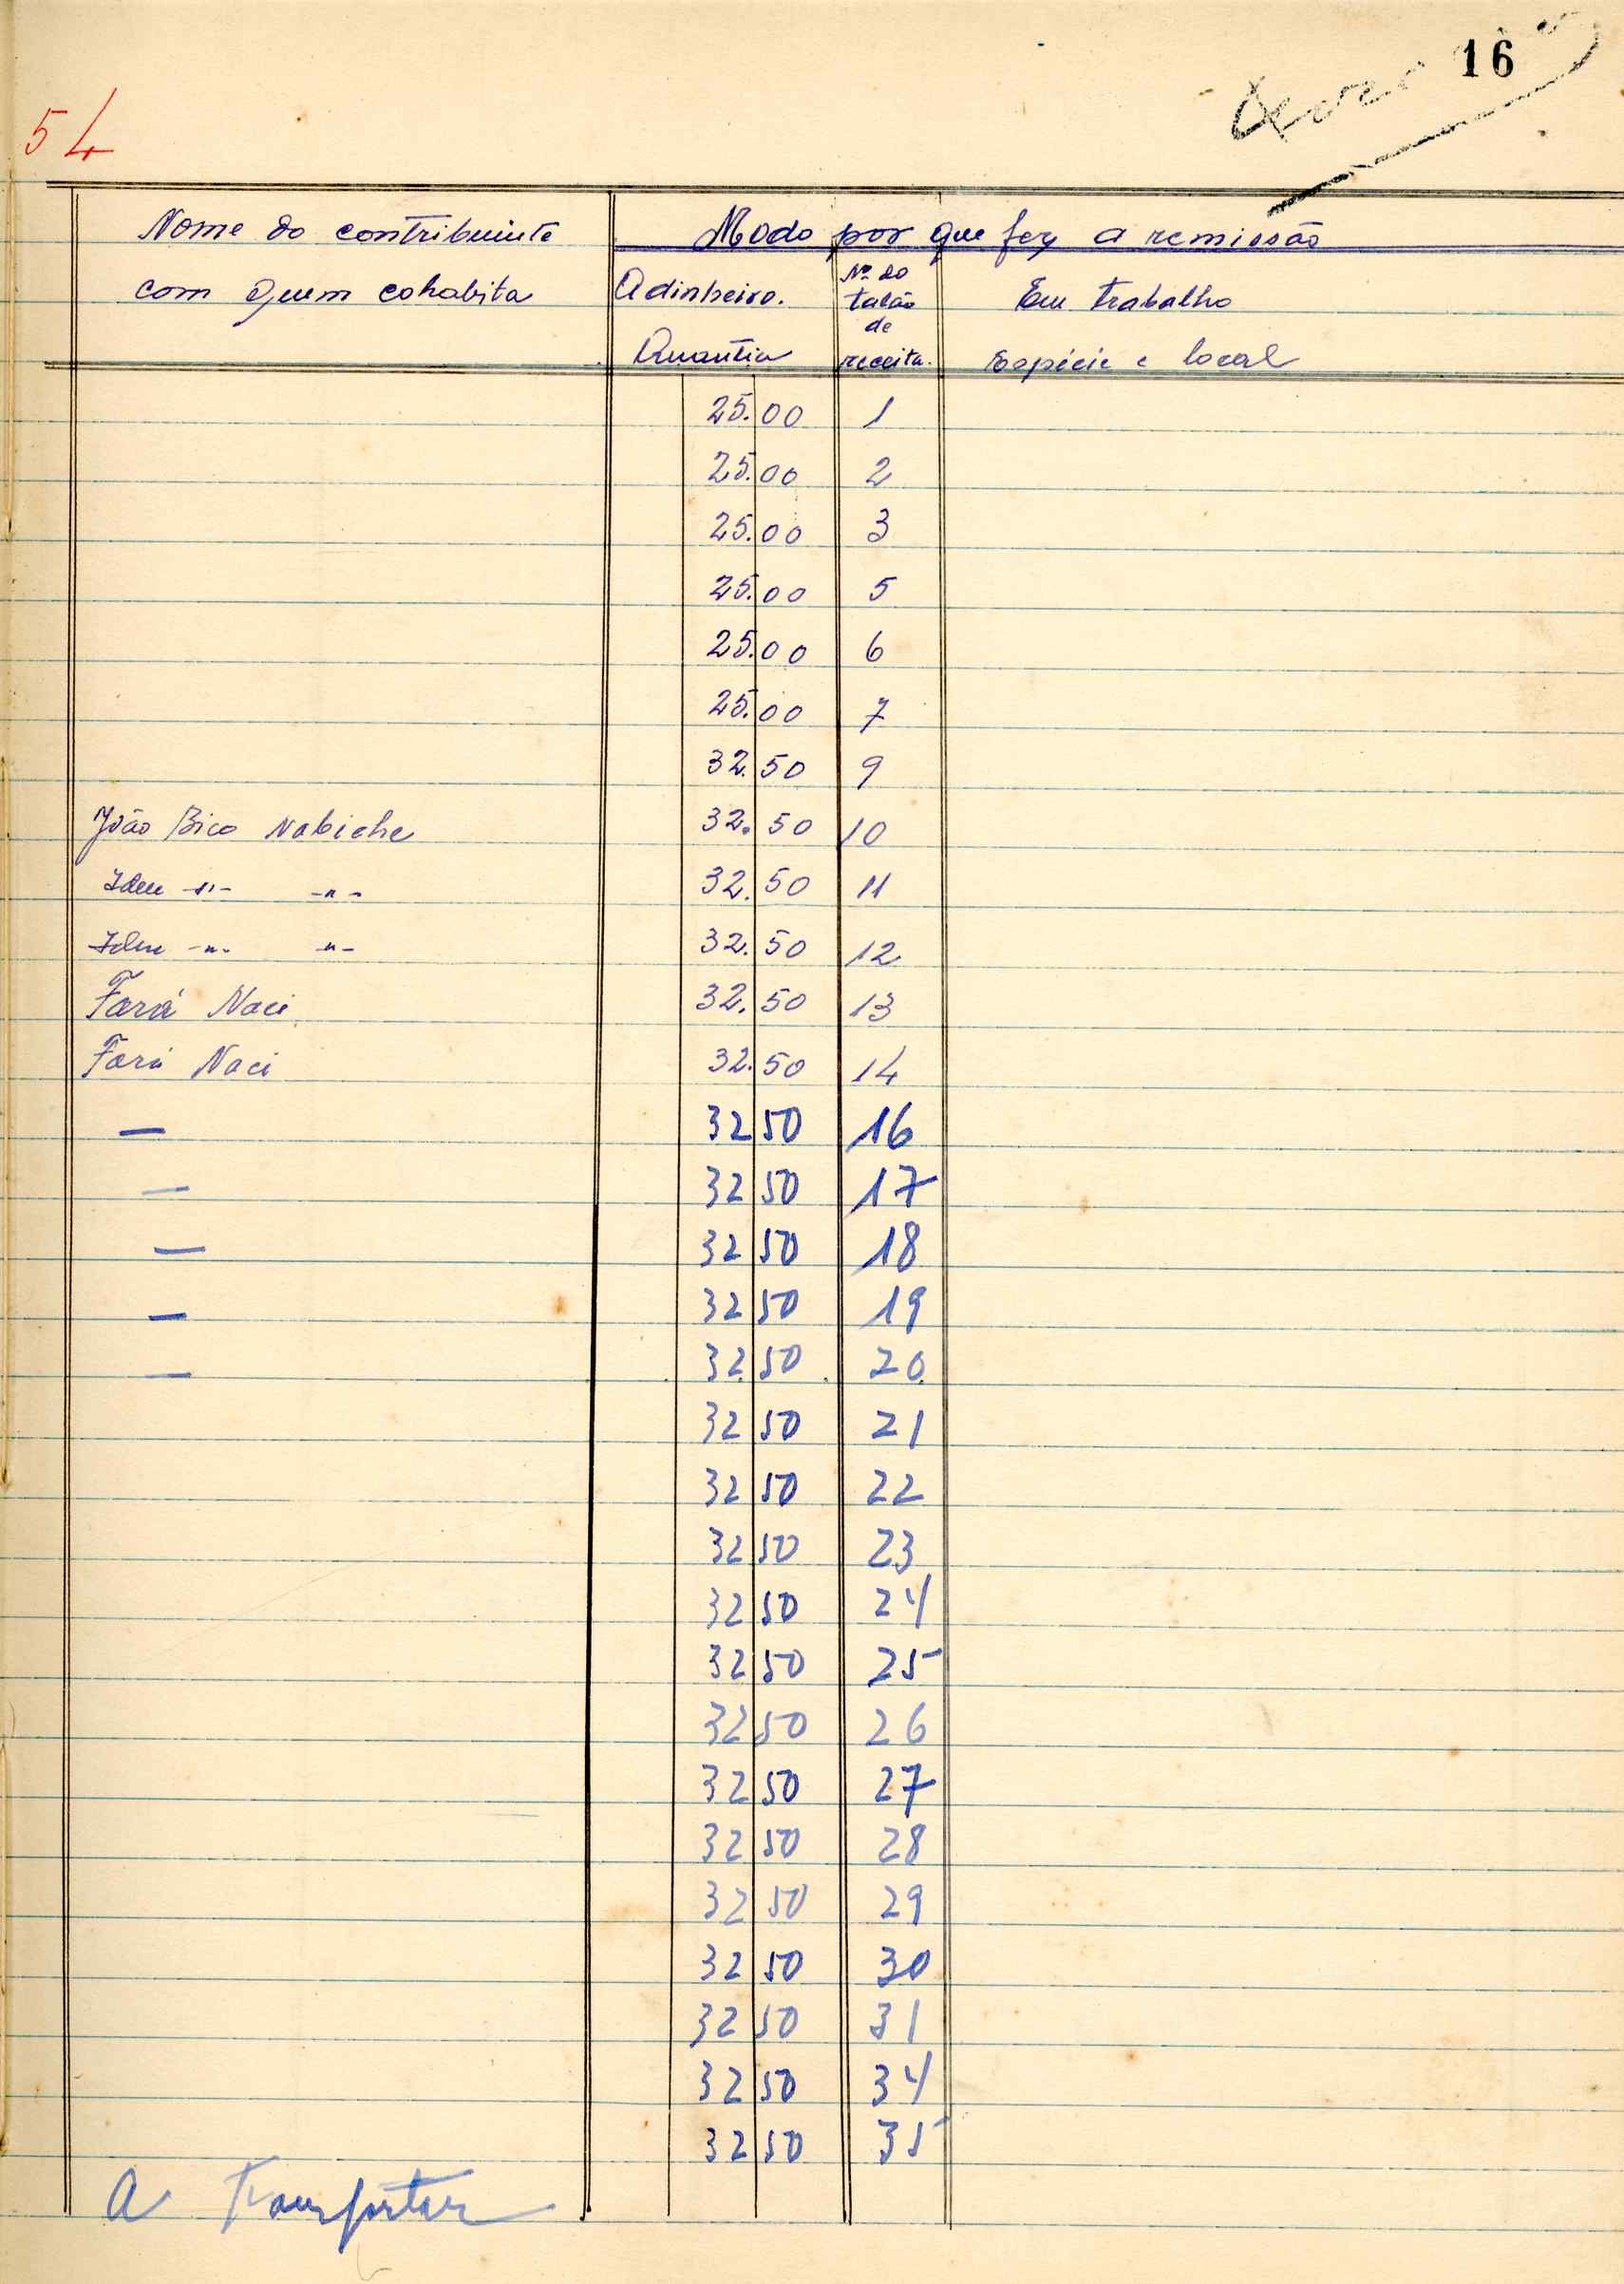 16
54
Nome do contribuinte Modo por que fez a remissão
com quem cohabita Adinheiro. Nº do talão de receita. Em trabalho
Quantia Espécie e local
25.00 1
25.00 2
25.00 3
25.00 5
25.00 6
25.00 7
32.50 9
João Bico Nabiche 32.50 10
Idem -"- -"- 32.50 11
Idem -"- -"- 32.50 12
Fará Naci 32.50 13
Fará Naci 32.50 14
— 32 50 16
— 32 50 17
— 32 50 18
— 32 50 19
— 32 50 20
32 50 21
32 50 22
32 50 23
32 50 24
32 50 25
32 50 26
32 50 27
32 50 28
32 50 29
32 50 30
32 50 31
32 50 34
32 50 35
A Transportar